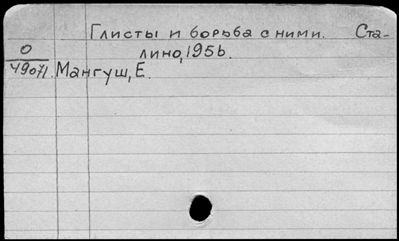 Глисты и борьба с ними. Ста-
лино, 1956.
О
49071. Мангуш, Е.